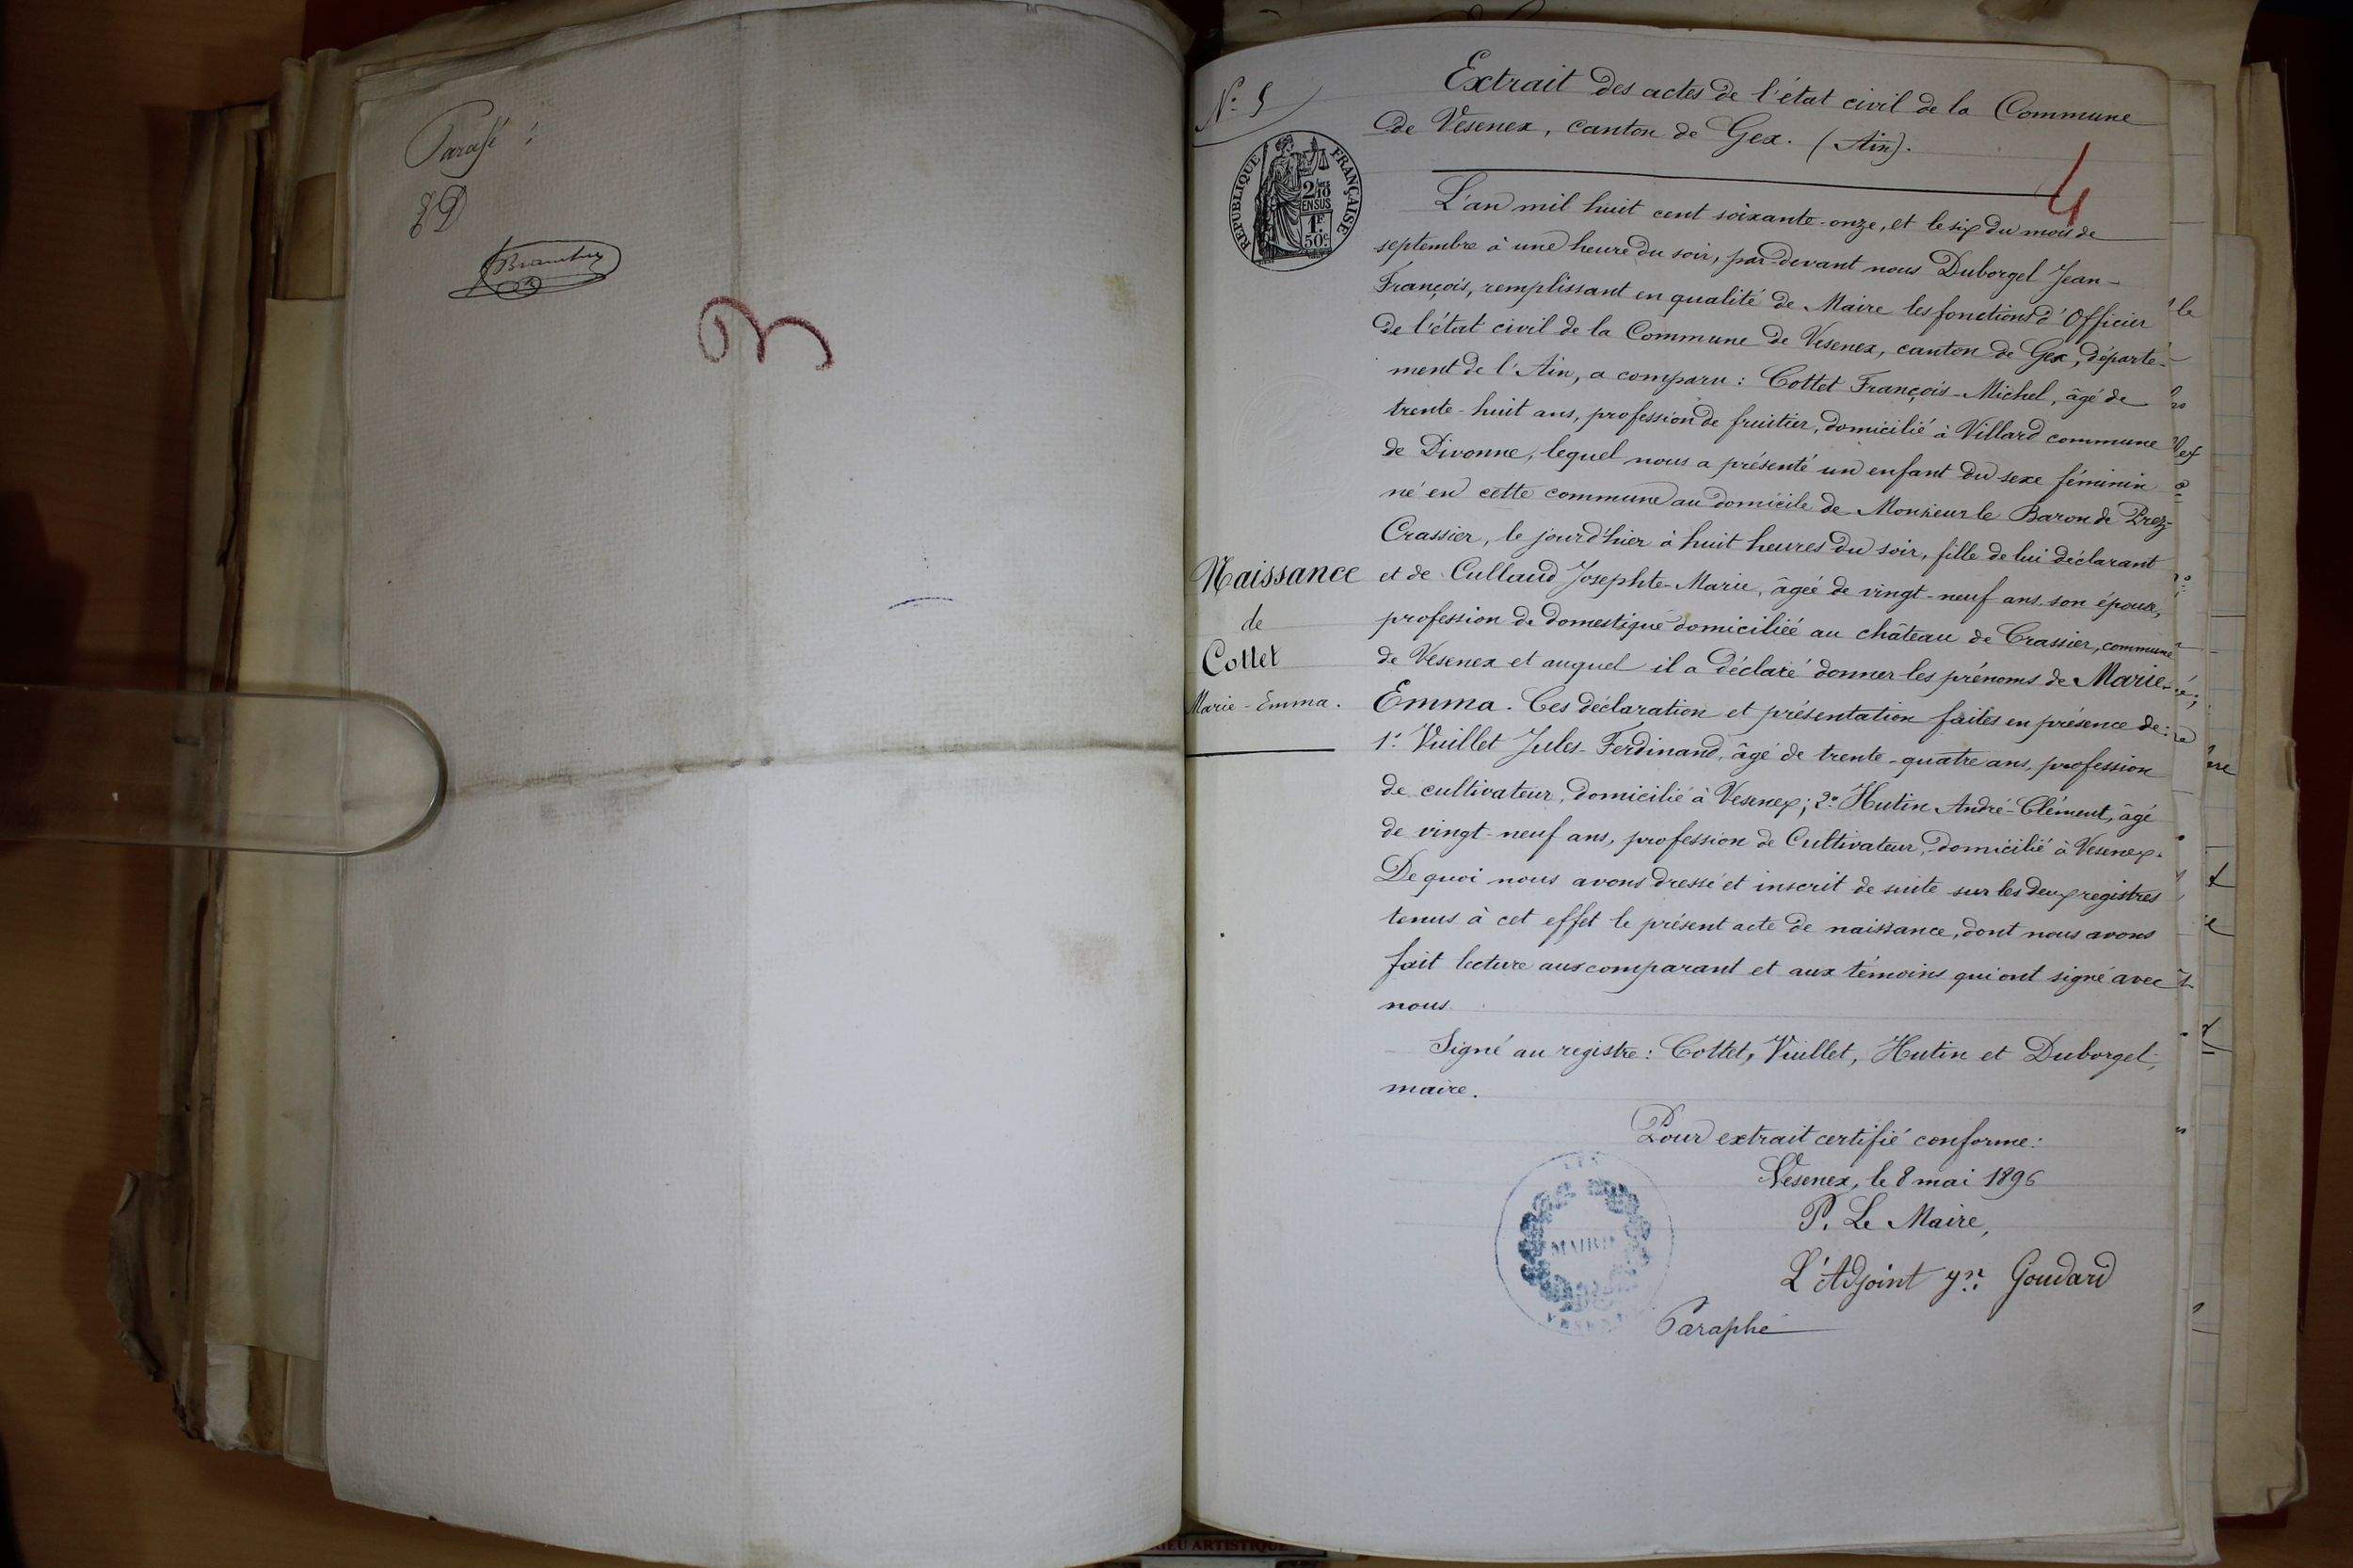 Parafé :
N.º 5
Extrait des actes de l'état civil de la Commune
de Vesenex, canton de Gex. (Ain).
4
RÉPUBLIQUE FRANÇAISE
2/10
EN SUS
1F.
50c
L'an mil huit cent soixante-onze, et le six du mois de
septembre à une heure du soir, par-devant nous Duborgel Jean-
François, remplissant en qualité de Maire les fonctions d'Officier
de l'état civil de la Commune de Vesenex, canton de Gex, départe-
ment de l'Ain, a comparu : Cottet François-Michel, âgé de
trente-huit ans, profession de fruitier, domicilié à Villard commune
de Divonne, lequel nous a présenté un enfant du sexe féminin
né en cette commune au domicile de Monsieur le Baron de Prez-
Crassier, le jour d'hier à huit heures du soir, fille de lui déclarant
et de Cullaud Josephte-Marie, âgée de vingt-neuf ans son épouse,
profession de domestique domiciliée au château de Crassier, commune
de Vesenex et auquel il a déclaré donner les prénoms de Marie-
Emma. Ces déclaration et présentation faites en présence de :
1º Vuillet Jules-Ferdinand, âgé de trente-quatre ans, profession
de cultivateur, domicilié à Vesenex; 2º Hutin André-Clément, âgé
de vingt-neuf ans, profession de Cultivateur, domicilié à Vesenex.
De quoi nous avons dressé et inscrit de suite sur les deux registres
tenus à cet effet le présent acte de naissance, dont nous avons
fait lecture aux comparant et aux témoins qui ont signé avec
nous.
Signé au registre : Cottet, Vuillet, Hutin et Duborgel,
maire.
Naissance
de
Cottet
Marie-Emma.
Pour extrait certifié conforme :
Vesenex, le 8 mai 1896
P. Le Maire,
L'Adjoint Goudard
MAIRIE
Paraphé
ARTISTIQUE